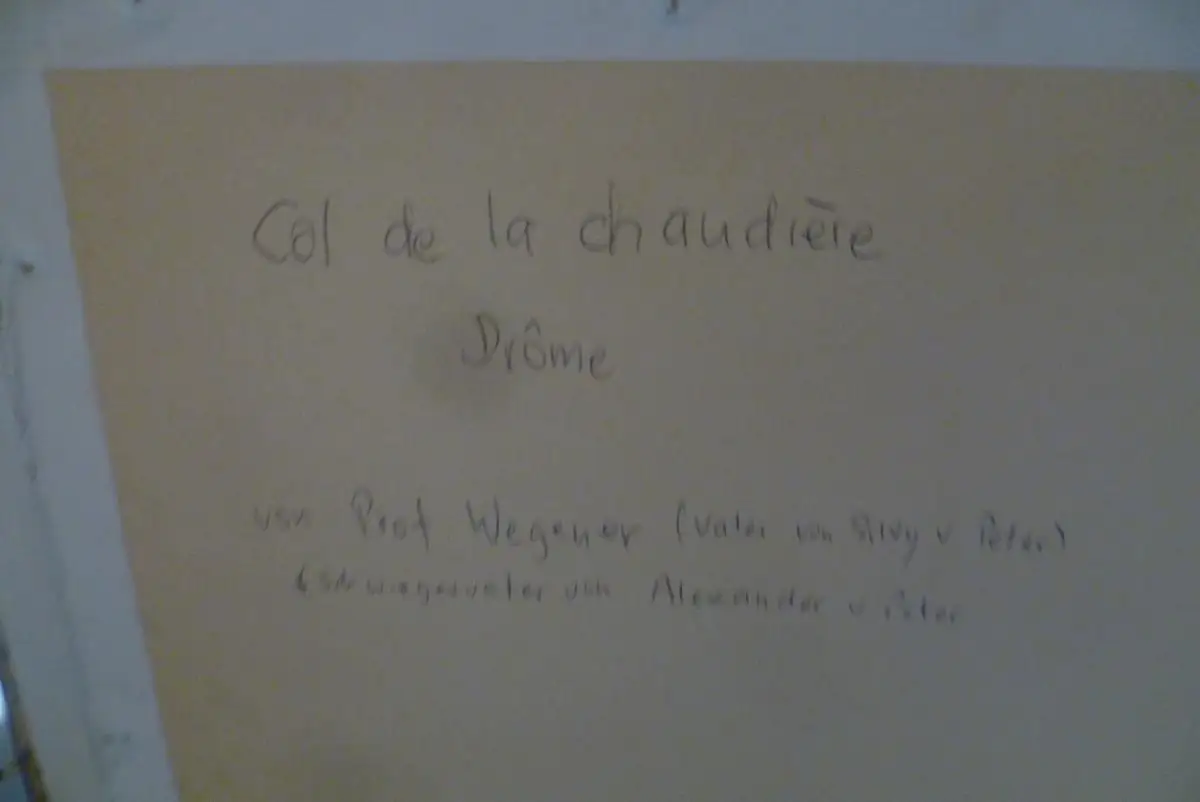 Col de la chaudière
Drôme
von Prof Wegener (Vater von v Peter)
(Schwiegervater von Alexander v Peter